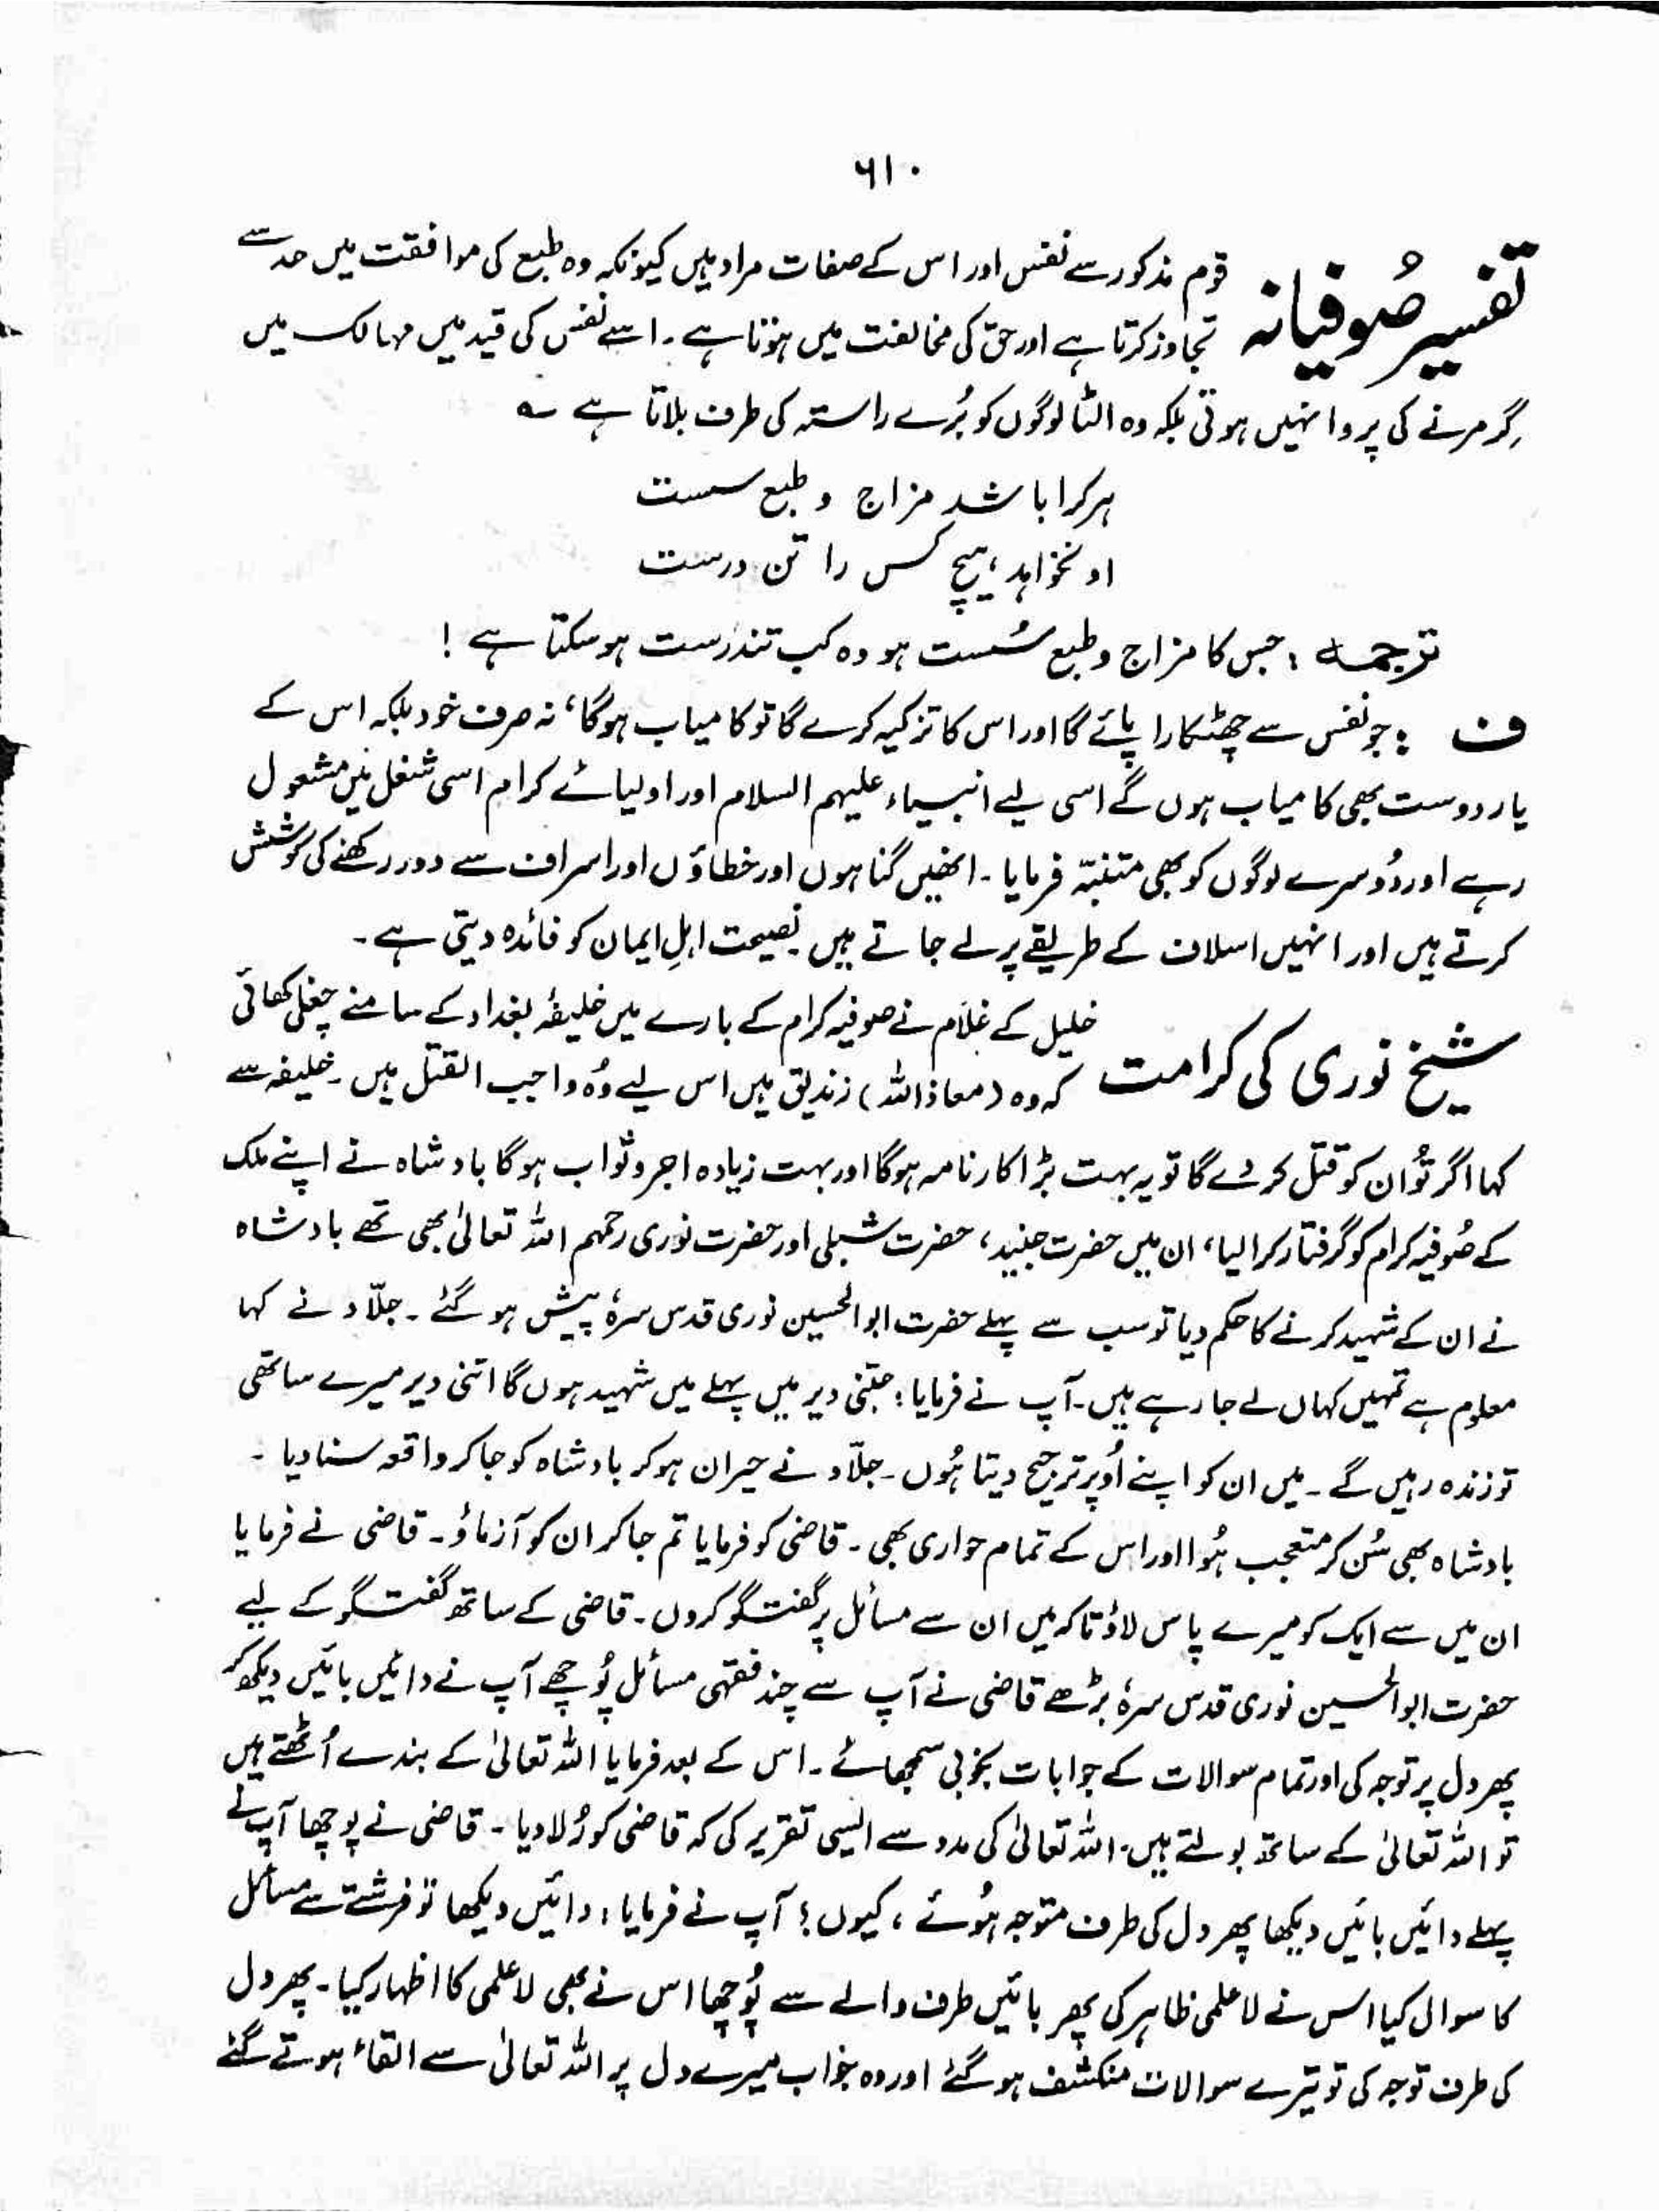 ۶۱۰
تفسیر صُوفیانہ
قوم مذکور سے نفس اور اس کے صفات مراد ہیں کیونکہ وہ طبع کی موافقت میں حد سے
تجاوز کرتا ہے اور حق کی مخالفت میں ہوتا ہے۔ اسے نفس کی قید میں مہالک میں
گر مرنے کی پروا نہیں ہوتی بلکہ وہ الٹا لوگوں کو بُرے راستہ کی طرف بلاتا ہے ؎
ہر کرا باشد مزاج و طبع سست
او نخواہد ہیچ کس را تن درست
ترجمہ : جس کا مزاج و طبع سُست ہو وہ کب تندرست ہو سکتا ہے !
ف : جو نفس سے چھٹکارا پائے گا اور اس کا تزکیہ کرے گا تو کامیاب ہوگا، نہ صرف خود بلکہ اس کے
یار دوست بھی کامیاب ہوں گے اسی لیے انبیاء علیہم السلام اور اولیائے کرام اسی شغل میں مشغول
رہے اور دُوسرے لوگوں کو بھی متنبّہ فرمایا۔ انھیں گناہوں اور خطاؤں اور اسراف سے دور رکھنے کی کوشش
کرتے ہیں اور انہیں اسلاف کے طریقے پر لے جاتے ہیں نصیحت اہلِ ایمان کو فائدہ دیتی ہے۔
شیخ نوری کی کرامت
خلیل کے غلام نے صوفیہ کرام کے بارے میں خلیفۂ بغداد کے سامنے چغلی کھائی
کہ وہ (معاذ اللہ) زندیق ہیں اس لیے وُہ واجب القتل ہیں۔ خلیفہ سے
کہا اگر تُو ان کو قتل کر دے گا تو یہ بہت بڑا کارنامہ ہوگا اور بہت زیادہ اجر و ثواب ہوگا بادشاہ نے اپنے ملک
کے صُوفیہ کرام کو گرفتار کرا لیا، ان میں حضرت جنید، حضرت شبلی اور حضرت نوری رحمہم اللہ تعالیٰ بھی تھے بادشاہ
نے ان کے شہید کرنے کا حکم دیا تو سب سے پہلے حضرت ابوالحسین نوری قدس سرہٗ پیش ہو گئے۔ جلّاد نے کہا
معلوم ہے تمہیں کہاں لے جا رہے ہیں۔ آپ نے فرمایا : جتنی دیر میں پہلے میں شہید ہوں گا اتنی دیر میرے ساتھی
تو زندہ رہیں گے۔ میں ان کو اپنے اُوپر ترجیح دیتا ہُوں۔ جلّاد نے حیران ہو کر بادشاہ کو جا کر واقعہ سنا دیا ۔
بادشاہ بھی سُن کر متعجب ہُوا اور اس کے تمام حواری بھی۔ قاضی کو فرمایا تم جا کر ان کو آزماؤ۔ قاضی نے فرمایا
ان میں سے ایک کو میرے پاس لاؤ تاکہ میں ان سے مسائل پر گفتگو کروں۔ قاضی کے ساتھ گفتگو کے لیے
حضرت ابوالحسین نوری قدس سرہٗ بڑھے قاضی نے آپ سے چند فقہی مسائل پُوچھے آپ نے دائیں بائیں دیکھ کر
پھر دل پر توجہ کی اور تمام سوالات کے جوابات بخوبی سمجھائے۔ اس کے بعد فرمایا اللہ تعالیٰ کے بندے اُٹھتے ہیں
تو اللہ تعالیٰ کے ساتھ بولتے ہیں۔ اللہ تعالیٰ کی مدد سے ایسی تقریر کی کہ قاضی کو رُلا دیا۔ قاضی نے پوچھا آپ نے
پہلے دائیں بائیں دیکھا پھر دل کی طرف متوجہ ہُوئے، کیوں؟ آپ نے فرمایا : دائیں دیکھا تو فرشتے سے مسائل
کا سوال کیا اس نے لاعلمی ظاہر کی پھر بائیں طرف والے سے پُوچھا اس نے بھی لاعلمی کا اظہار کیا۔ پھر دل
کی طرف توجہ کی تو تیرے سوالات منکشف ہو گئے اور وہ جواب میرے دل پر اللہ تعالیٰ سے القاء ہوتے گئے